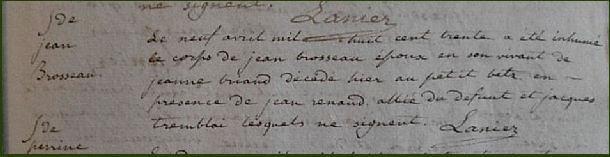 ne signent.
Lanier
S de
jean
Brosseau
Le neuf avril mil huit cent trente a été inhumé
le corps de jean brosseau époux en son vivant de
jeanne briand décédé hier au petit betz en
presence de jean renaud, allié du defunt et jacques
tremblai lesquels ne signent. Lanier
S de
perrine